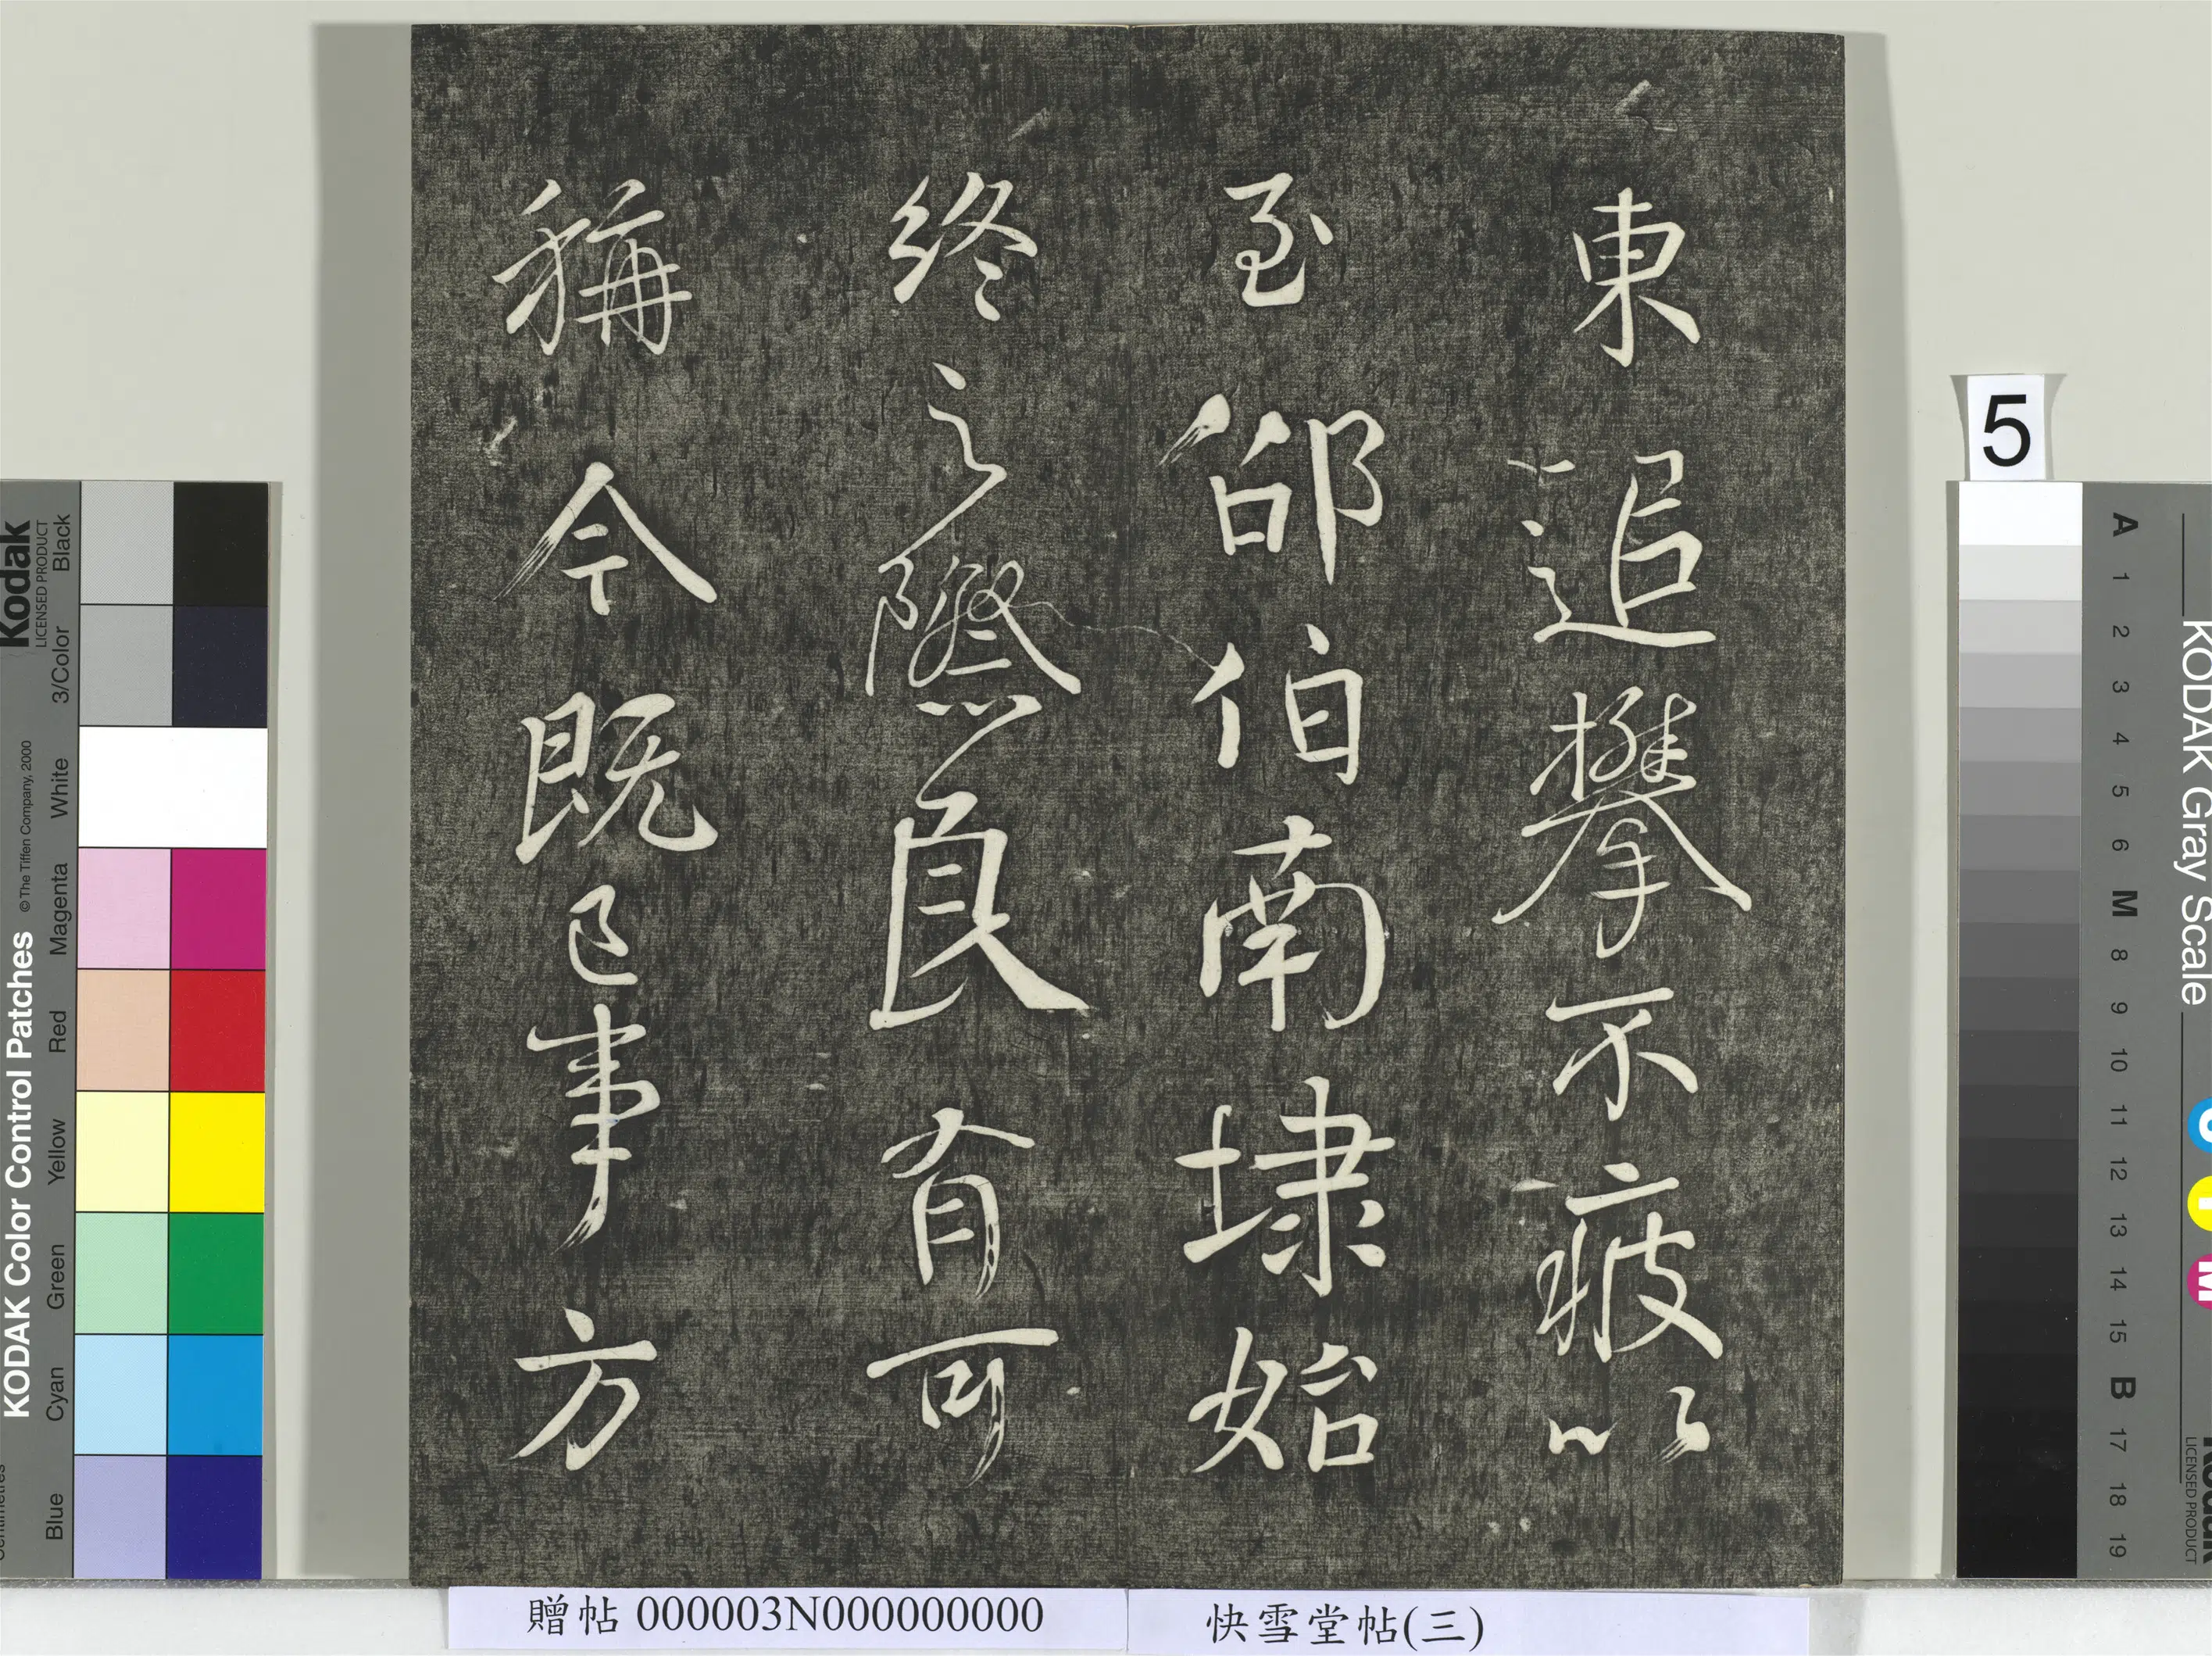 東追攀不疲以
至邵伯南埭始
終之際良有可
稱今既已事方
5
贈帖 000003N000000000
快雪堂帖(三)
Kodak
LICENSED PRODUCT
KODAK Color Control Patches
© The Tiffen Company, 2000
Black
3/Color
White
Magenta
Red
Yellow
Green
Cyan
Blue
KODAK Gray Scale
A
1
2
3
4
5
6
M
8
9
10
11
12
13
14
15
B
17
18
19
C
Y
M
LICENSED PRODUCT